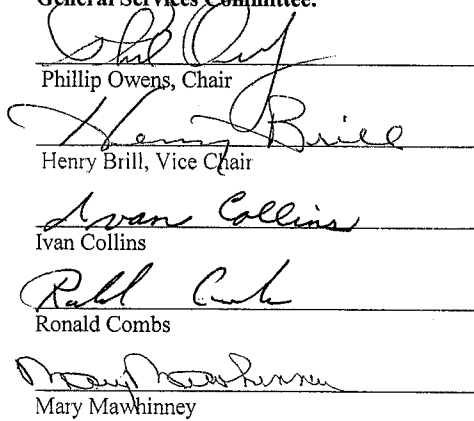 General Services Committee:
Phil Owens
Phillip Owens, Chair
Henry Brill
Henry Brill, Vice Chair
Ivan Collins
Ivan Collins
Ronald Combs
Mary Mawhinney
Mary Mawhinney